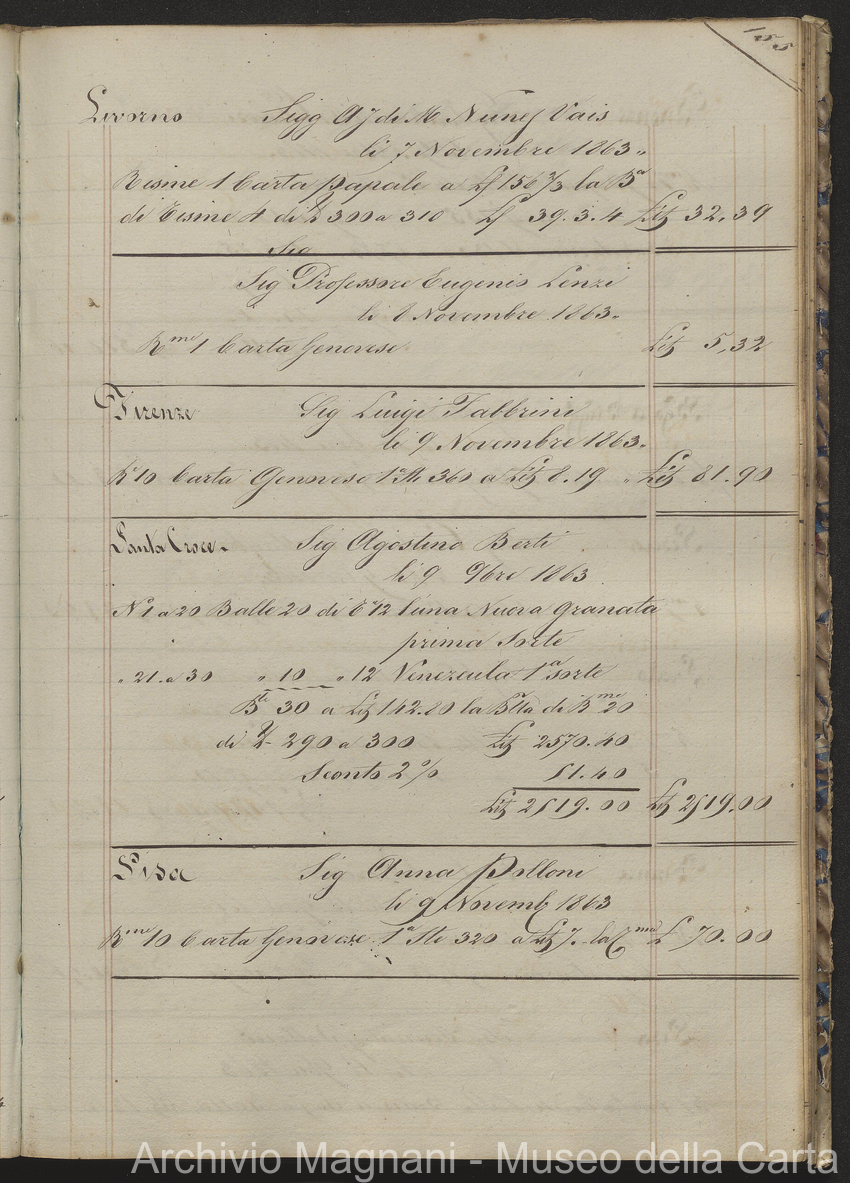 155
Livorno Sigg A J di M. Nunes Vais
li 7 Novembre 1863 "
Risme 1 Carta papale a Lf 156 2/3 la Ba
di Risme 4 di L 300 a 310 Lf 39. 3. 4 Lit 32,39
Sig
Sig Professore Eugenio Lenzi
li 8 Novembre 1863.
Rme 1 Carta Genovese Lit 5,32
Firenze Sig Luigi Fabbrini
li 9 Novembre 1863.
R 10 Carta Genovese 1a Ste 360 a Lit 8.19 " Lit 81.90
Santa Croce. Sig Agostino Berti
li 9 9bre 1863
No 1 a 20 Balle 20 di 12 l'una Nuova Granata
prima Sorte
" 21. a 30 " 10 " 12 Venezuela 1a sorte
Ble 30 a Lit 142.80 la di Rme 20
di L 290 a 300 Lit 2570.40
Sconto 2 % 51.40
Lit 2519.00 Lit 2519.00
Pisa Sig Anna Polloni
li 9 Novemb 1863
Rme 10 Carta Genovese 1a Ste 320 a Lit 7. la L 70.00
Archivio Magnani - Museo della Carta